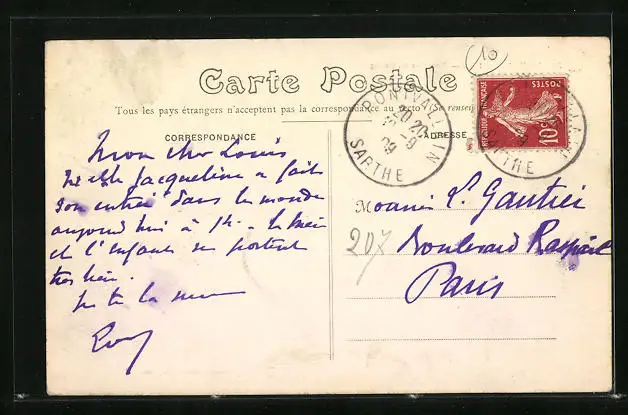 10
Carte Postale
Tous les pays étrangers n'acceptent pas la correspondance au recto (Se renseig
CORRESPONDANCE
ADRESSE
PONTVALLAIN
20 20
9
09
SARTHE
REPUBLIQUE FRANÇAISE
POSTES
10
SARTHE
Mon cher Louis
Melle Jacqueline a fait
son entrée dans le monde
aujourd'hui à
et l'enfant se portent
très bien.
Monsieur L. Gautier
207 Boulevard Raspail
Paris